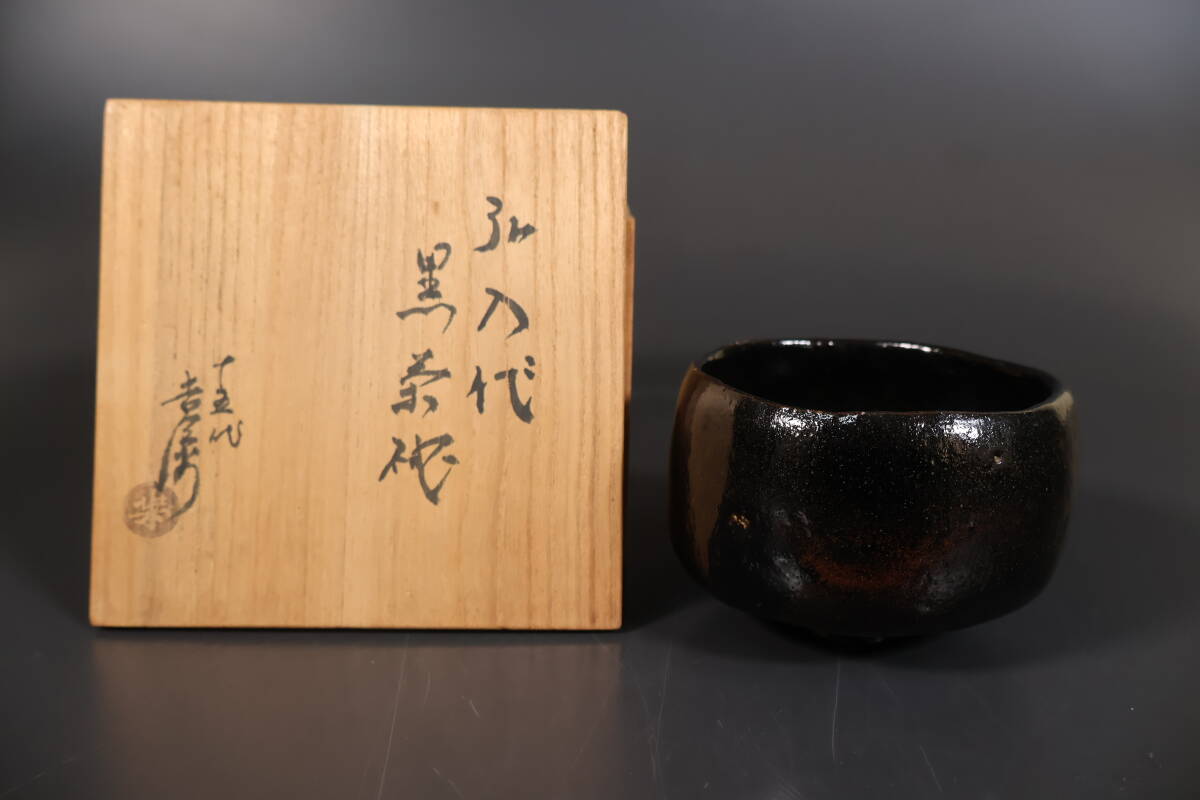 弘入代
黒茶碗
十五代
吉左衛門
樂